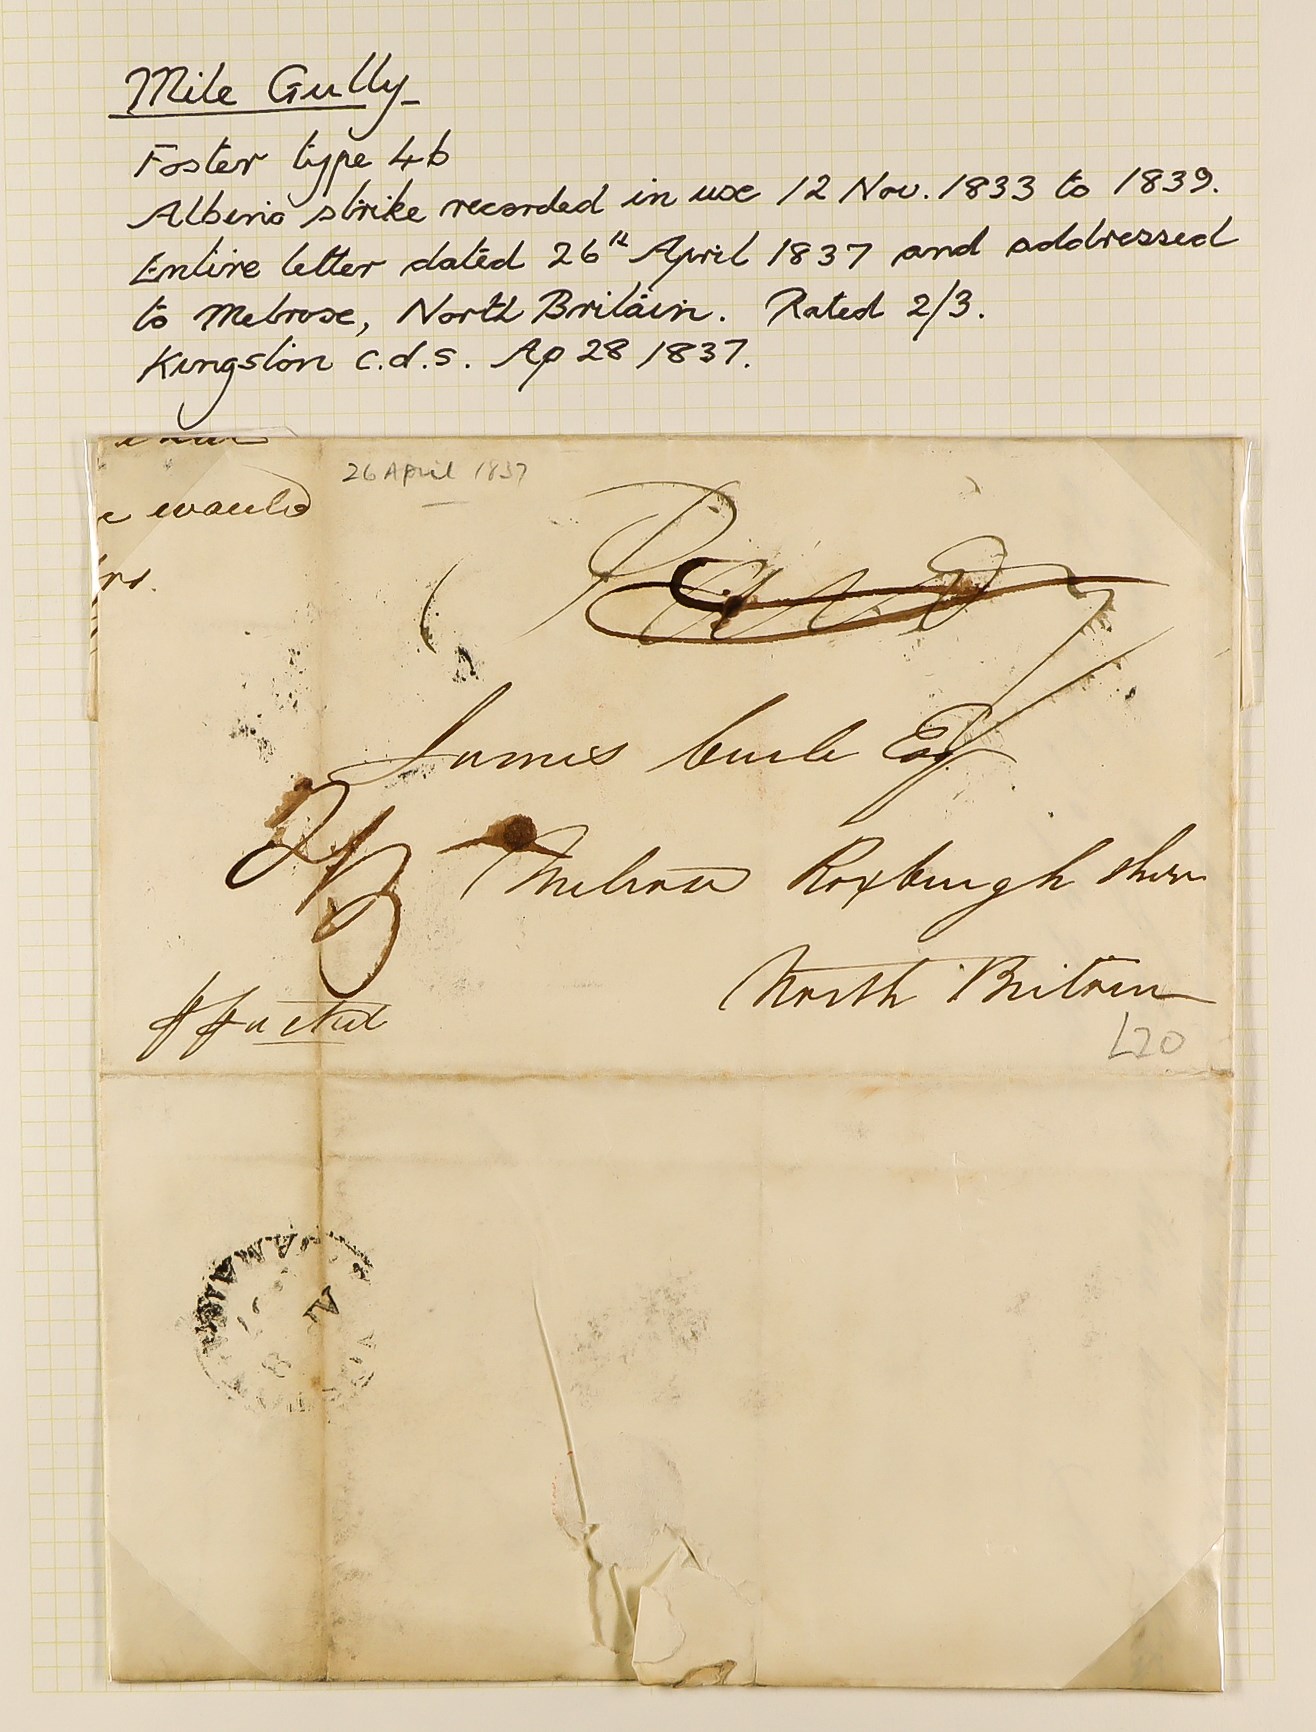 Mile Gully
Foster type 4b
Albino strike recorded in use 12 Nov. 1833 to 1839.
Entire letter dated 26th April 1837 and addressed
to Melrose, North Britain. Rated 2/3.
Kingston c.d.s. Ap 28 1837.
would
26 April 1837
Paid
James Curle Esq
2/3
Melrose Roxburgh shire
North Britain
p packet
L20
JAMAICA
AP
8